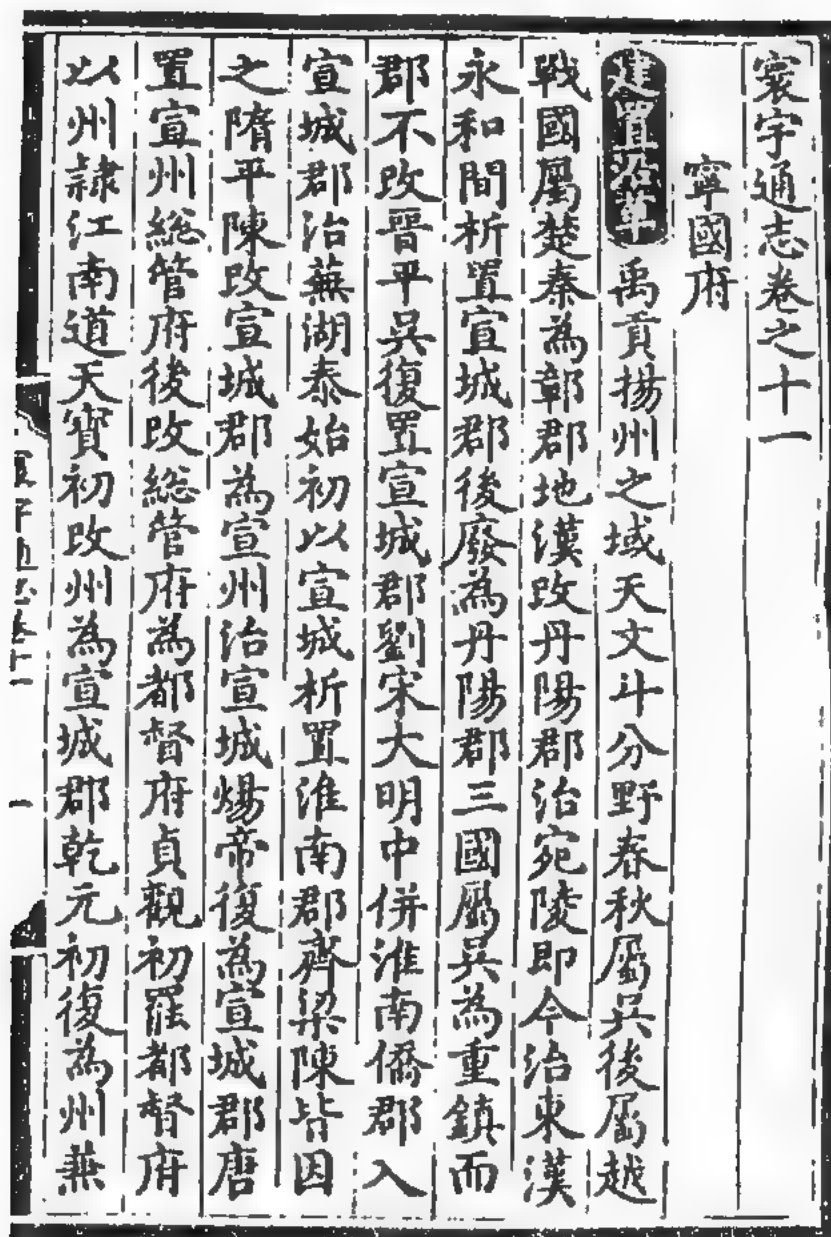 寰宇通志卷之十一
寧國府
建置沿革 禹貢揚州之域天文斗分野春秋屬吳後屬越
戰國屬楚秦為鄣郡地漢改丹陽郡治宛陵即今治東漢
永和間析置宣城郡後廢為丹陽郡三國屬吳為重鎮而
郡不改晉平吳復置宣城郡劉宋大明中併淮南僑郡入
宣城郡治蕪湖泰始初以宣城析置淮南郡齊梁陳皆因
之隋平陳改宣城郡為宣州治宣城煬帝復為宣城郡唐
置宣州総管府後改総管府為都督府貞觀初罷都督府
以州隷江南道天寳初改州為宣城郡乾元初復為州兼
寰宇通志卷十一
一